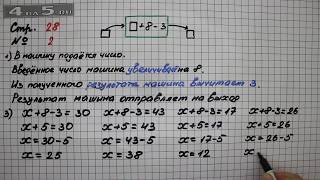 4 на 5. ru
Стр. 28
№ 2
□+8-3
1) В машину подаётся число.
Введённое число машина увеличивает на 8.
Из полученного результата машина вычитает 3.
Результат машина отправляет на выход
3) x+8-3=30 x+8-3=43 x+8-3=17 x+8-3=26
x+5=30 x+5=43 x+5=17 x+5=26
x=30-5 x=43-5 x=17-5 x=26-5
x=25 x=38 x=12 x